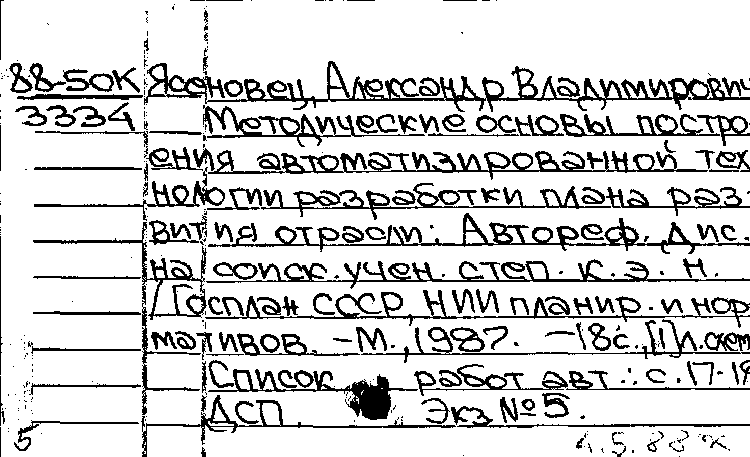 88-50К Ясеновец, Александр Владимирович
3334 Методические основы постро
ения автоматизированной тех
нологии разработки плана раз
вития отрасли: Автореф. Дис.
на соиск. учен. степ. к. э. н.
/Госплан СССР, НИИ планир. и нор
мативов. – М., 1987. – 18 с., [1] л. схем
Список работ авт.: с. 17-18
ДСП. Экз №5.
5 4.5.88